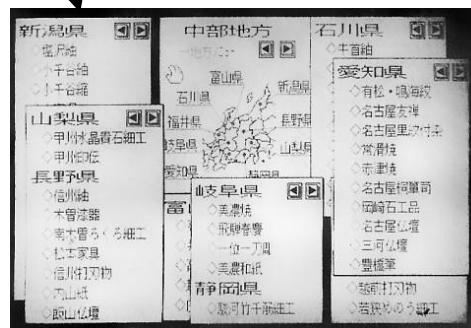 新潟県
◇塩沢紬
◇小千谷紬
◇小千谷縮
山梨県
◇甲州水晶貴石細工
◇甲州印伝
長野県
◇信州紬
◇木曽漆器
◇南木曽ろくろ細工
◇松本家具
◇信州打刃物
◇内山紙
◇飯山仏壇
中部地方
富山県
新潟県
石川県
福井県
長野県
岐阜県
山梨県
愛知県
静岡県
富
岐阜県
◇美濃焼
◇飛騨春慶
◇一位一刀彫
◇美濃和紙
静岡県
◇駿河竹千筋細工
石川県
◇牛首紬
愛知県
◇有松・鳴海絞
◇名古屋友禅
◇名古屋黒紋付染
◇常滑焼
◇赤津焼
◇名古屋桐箪司
◇岡崎石工品
◇名古屋仏壇
◇三河仏壇
◇豊橋筆
◇越前打刃物
◇若狭めのう細工